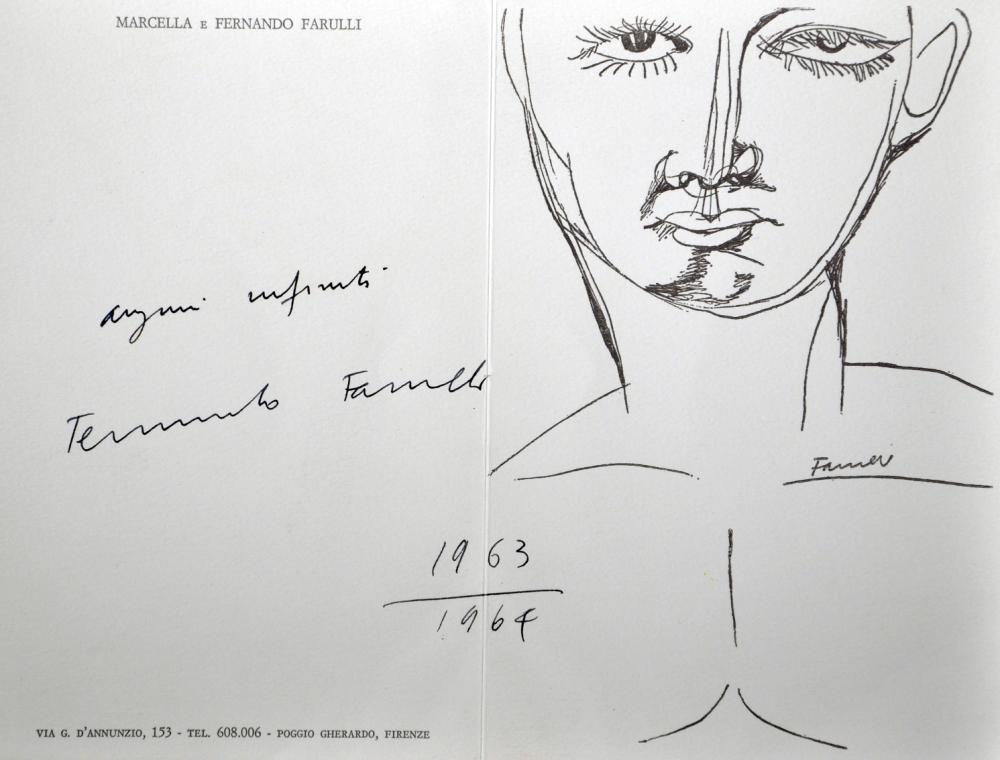 MARCELLA E FERNANDO FARULLI
auguri infiniti
Fernando Farulli
Farulli
1963
1964
VIA G. D'ANNUNZIO, 153 - TEL. 608.006 - POGGIO GHERARDO, FIRENZE